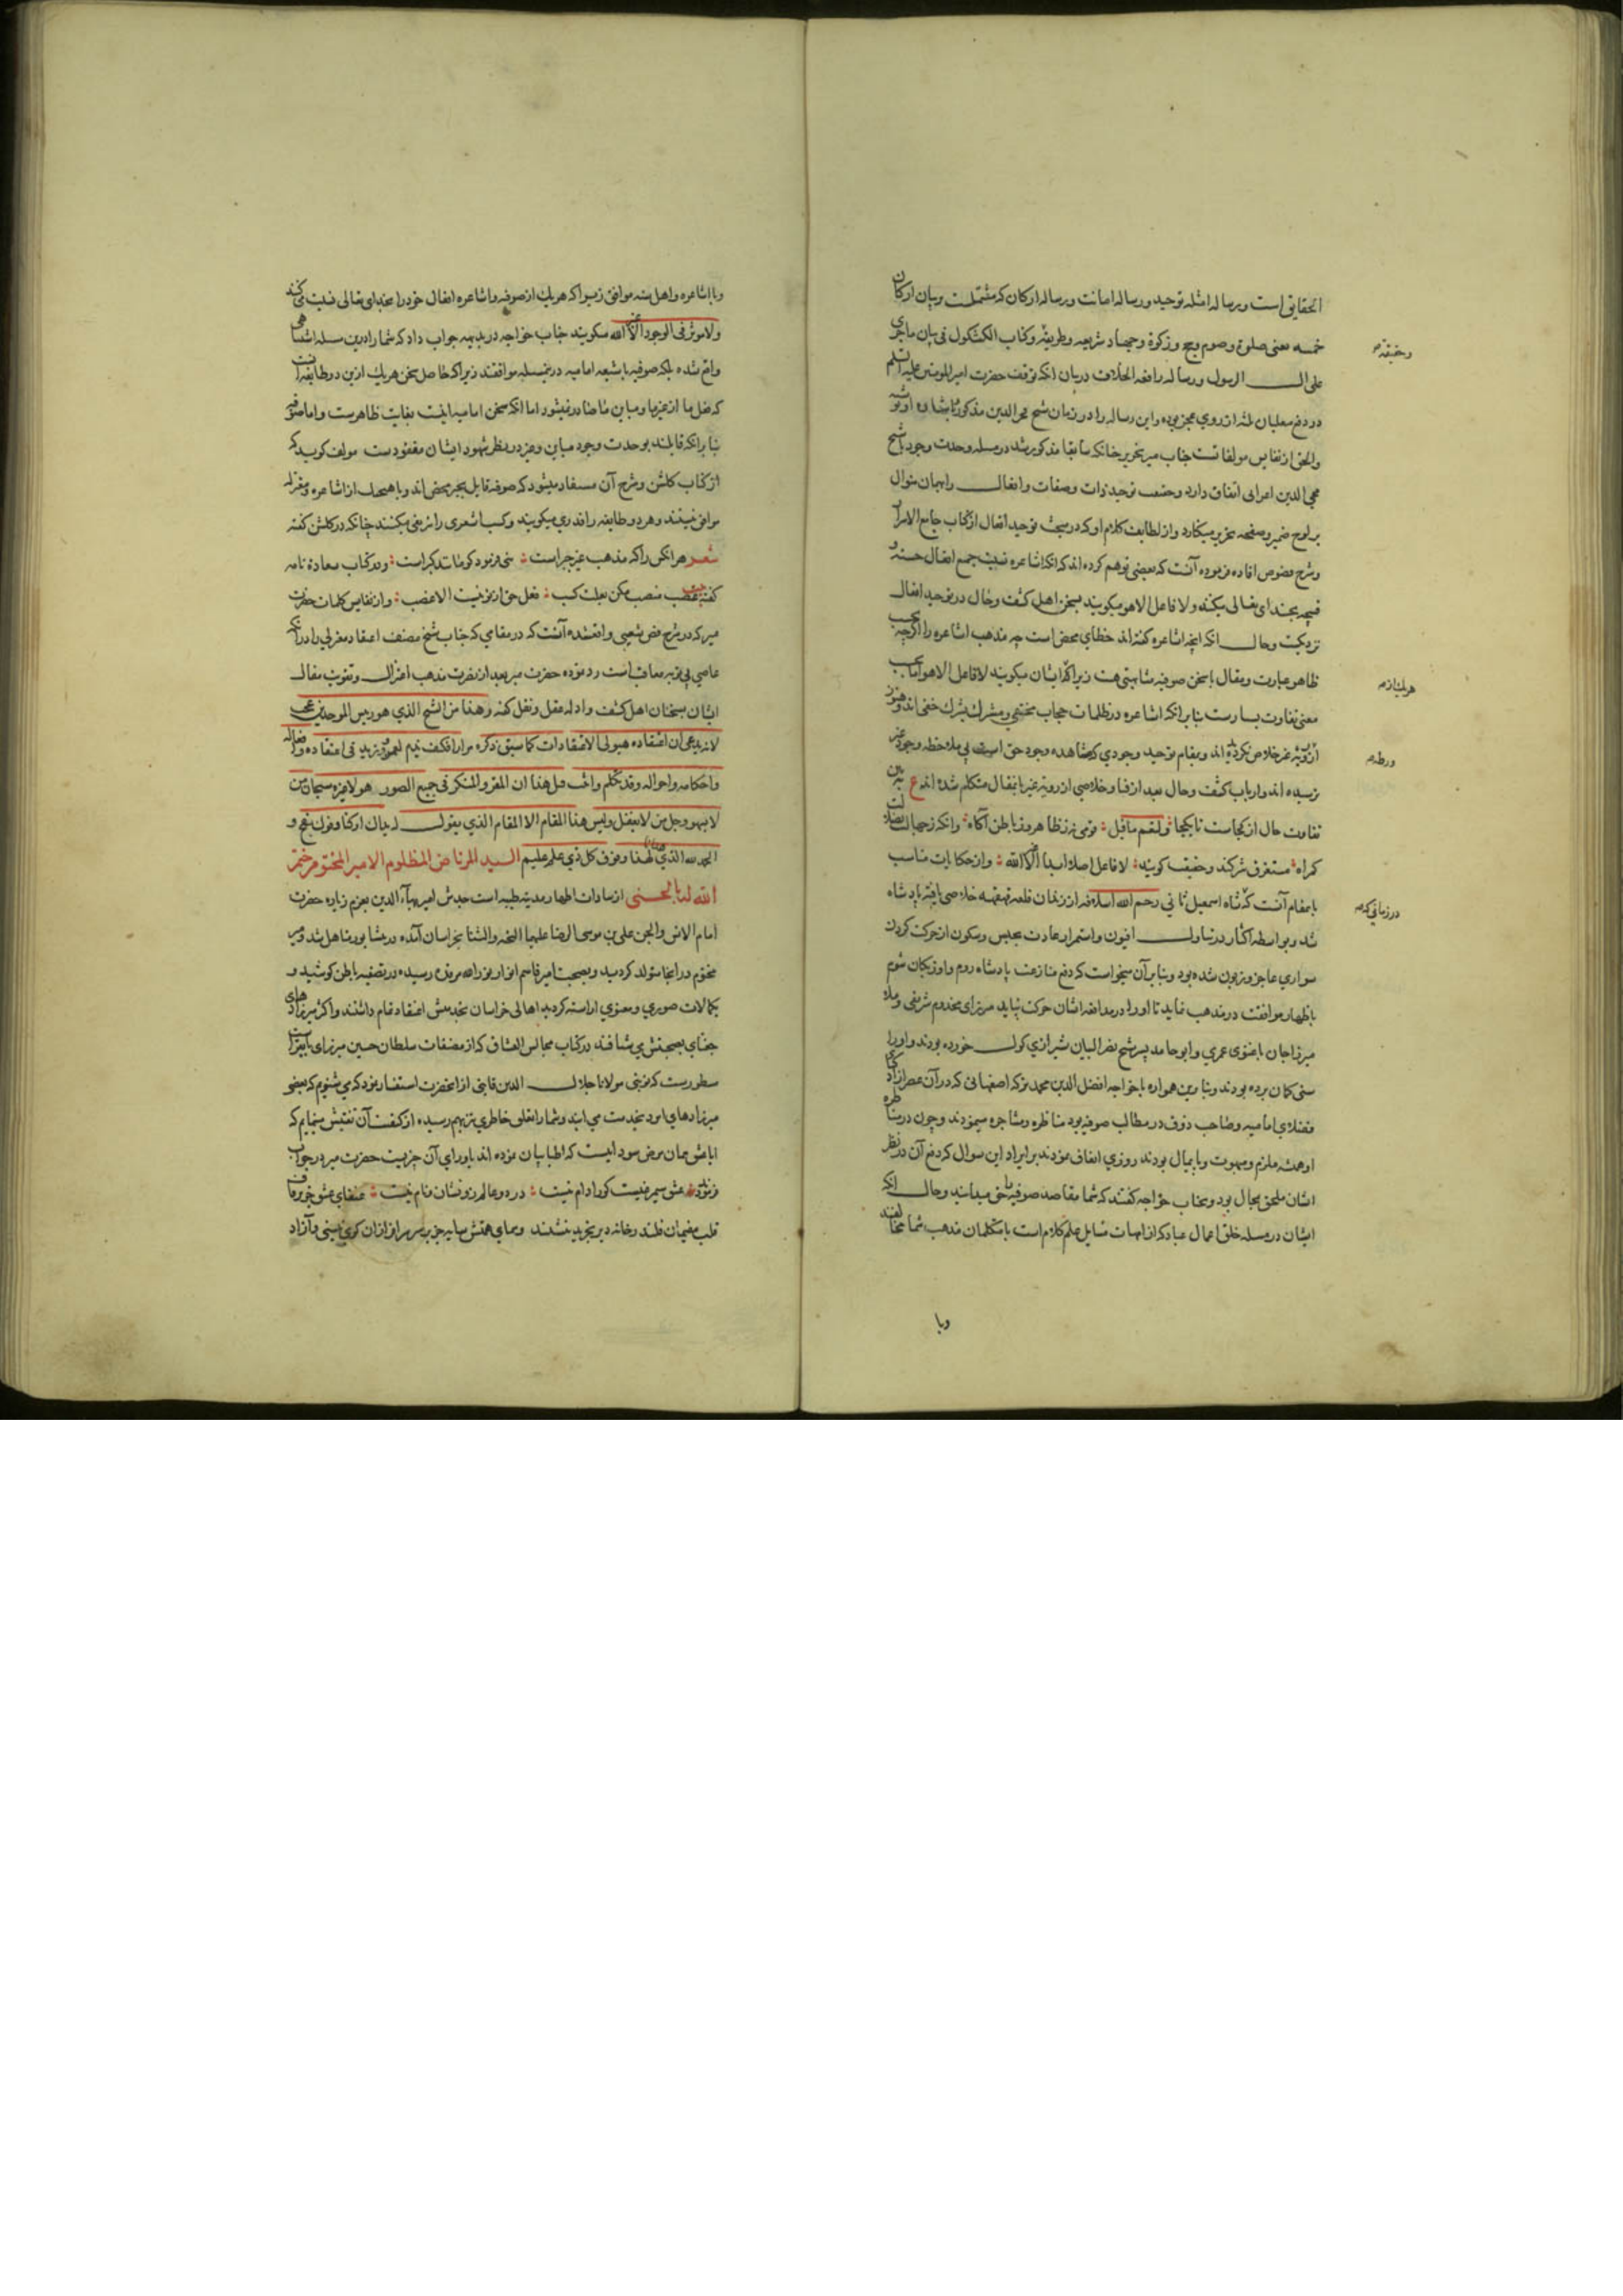 الحقایق است و رساله امثله توحید و رساله امانت و رساله ارکان که مشتملست بر بیان ارکان
خمسه یعنی صلوة و صوم و حج و زکوة و جهاد بشریعه و طریقه و کتاب الکشکول فی بیان ماجری
و حقیقه
علی ال الرسول و رساله رافعه الخلاف در بیان انکه توقف حضرت امیرالمومنین علیه السلم
در دفع متغلبان ثلثه از روی عجز بوده و این رساله را در زمان شیخ فخرالدین مذکور باشاره او نوشته
والحق از نفایس مولفاتست جناب میر بتحریر چنانکه سابقا مذکور شد در مسله وحدت وجود با شیخ
محی الدین اعرابی اتفاق دارد و حقیقت توحید ذات و صفات و افعال را بهمان منوال
بر لوح ضمیر و صفحه تحریر مینگارد و از لطایف کلام او که در مبحث توحید افعال از کتاب جامع الاسرار
و شرح فصوص افاده فرموده آنست که بعضی توهم کرده اند که انکه اشاعره نسبت جمیع افعال حسنه و
قبیحه بخدای تعالی میکنند و لا فاعل الا هو میکویند بسخن اهل کشف و حال در توحید افعال
نزدیکست و حال انکه انچه اشاعره کفته اند خطای محض است چه مذهب اشاعره را اکرچه بحسب
ظاهر عبارت و مقال با سخن صوفیه مناسبتی هست زیرا که ایشان میکویند لا فاعل الا هو اما بحسب
هریک از
معنی تفاوت بسیارست بنا برانکه اشاعره در ظلمات حجاب مختفی و مشرک بشرک خفی اند و هنوز
از رویة غیر خلاص نکردیده اند و بمقام توحید وجودی که مشاهده وجود حق است بی ملاحظه وجود غیر
ورطه
نرسیده اند و ارباب کشف و حال بعد از فنا و خلاصی از رویة غیر بانفعال متکلم شده اند ع ببین
تفاوت حال از کجاست تا بکجا و لنعم ما قیل قومی نه ز ظاهر و نه ز باطن آکاه وانکه ز جهالت بضلالت
کمراه مستغرق شرکند و حقیقت کویند لا فاعل اصلا ابدا الا الله و از حکایات مناسب
بامقام آنست که شاه اسمعیل ثانی رحم الله اسلافه از زندان قلعه قهقهه خلاصی یافته پادشاه
در زمانی که
شد و بواسطه اکثار در تناول افیون و استمرار عادت بحبس و سکون از حرکت کردن
سواری عاجز و زبون شده بود و بنا بر آن میخواست که دفع منازعت پادشاه روم و اوزبکان شوم
باظهار موافقت در مذهب نماید تا او را در مدافعه ایشان حرکت نباید میرزای مخدوم شریفی و ملا
میرزا جان باغنوی عمری و ابوحامد پسر شیخ نصرالبیان شیرازی کول خورده بودند و او را
سنی کمان برده بودند و بنا برین همواره با خواجه افضل الدین محمد ترکه اصفهانی که در آن عصر از اذکیای
فضلای امامیه و صاحب ذوق در مطالب صوفیه بود مناظره و مشاجره مینمودند و چون در مناظره
او همیشه ملزم و مبهوت و پایمال بودند روزی اتفاق نمودند بر ایراد این سوال که دفع آن در نظر
ایشان ملحق بمحال بود و بجناب خواجه کفتند که شما مقاصد صوفیه را حق میدانید و حال انکه
ایشان در مسله خلق اعمال عباد که از امهات مسایل علم کلام است با متکلمان مذهب شما مخالفند
وبا
وبا اشاعره و اهل سنه موافق زیرا که هریک از صوفیه و اشاعره افعال خود را بخدای تعالی نسبت میکنند
و لا موثر فی الوجود الا الله میکویند جناب خواجه در بدیهه جواب داد که شما را درین مسله اشتباهی
واقع شده بلکه صوفیه با شیعه امامیه درین مسله موافقند زیرا که حاصل سخن هریک ازین دو طایفه آنست
که فعل ما از غیر ما و مباین ما صادر نمیشود اما انکه سخن امامیه اینست بغایت ظاهرست و اما صوفیه
بنا برانکه قایلند بوحدت وجود مباین و غیر در نظر شهود ایشان مفقودست مولف کوید که
از کتاب کلشن و شرح آن مستفاد میشود که صوفیه قایل بجبر محض اند و با هیچیک از اشاعره و معتزله
موافق نیستند و هر دو طایفه را قدری میکویند و کسب اشعری را نیز نفی میکنند چنانکه در کلشن کفته
شعر هر آنکس را که مذهب غیر جبر است نبی فرمود کو مانند کبر است و در کتاب سعادة نامه
کفته بیت منصب مکن بعلت کسب فعل حق از تو نیست الا غصب و از نفایس کلمات حضرت
میر که در شرح فص شعیبی واقعشده آنست که در مقامی که جناب شیخ مصنف اعتقاد معتزلی را در انکه
عاصی بی توبه معاقب است رد نموده حضرت میر بعد از نصرت مذهب اعتزال و تقویت مقال
ایشان بسخنان اهل کشف و ادله عقل و نقل کفته و هذا من الشیخ الذی هو رییس الموحدین عجب
لانه یدعی ان اعتقاده هیولی الاعتقادات کما سبق ذکره مرارا فکیف یذم لعمرو و زید فی اعتقاده و افعاله
و احکامه و احواله و قد حکم و اثبت قبل هذا ان المقر و المنکر فی جمیع الصور هو لا غیره سبحان من
لا یسهو و جل من لا یغفل و لیس هذا المقام الا المقام الذی یقول لسان ارکنا و فوق نهج و
الحمد لله الذی هدانا لهذا و فوق کل ذی علم علیم السید المرتاض المظلوم الامیر المختوم ختم
الله له بالحسنی از سادات اطهار مدینه طیبه است جدش امیر بهآء الدین بعزم زیاره حضرت
امام الانس والجن علی بن موسی الرضا علیهما التحیه والثنا بخراسان آمده در نیشابور متاهل شد و میر
مختوم در انجا متولد کردید و بصحبت امیر قاسم انوار نور الله مرقده رسیده در تصفیه باطن کوشید و
بکمالات صوری و معنوی اراسته کردید اهالی خراسان بخدمتش اعتقاد تمام داشتند و اکثر میرزادهای
جغتای بصحبتش می شتافتند در کتاب مجالس العشاق که از مصنفات سلطان حسین میرزای بایقراست
مسطورست که نوبتی مولانا جلال الدین قاینی از انحضرت استفسار نمود که می شنویم که بعضی
میرزادهای امرد بخدمت می ایند و شما را تعلق خاطری بدیشان بهم رسیده از کیفیت آن تفتیش مینمایم که
ایا عشق همان مرض سوداییست که اطبا بیان نموده اند یا ورای آن چیزیست حضرت میر در جواب
فرمودند عشق سیمرغیست کورا دام نیست در دو عالم زو نشان و نام نیست عنقای عشق جز بر قاف
قلب مقیمان قلندرخانه دیر تجرید ننشیند و همای همتش سایه جز بر سر سرافرازان کوی نیستی و آزاد